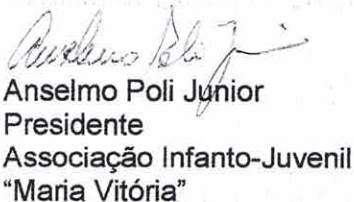 Anselmo Poli Junior
Presidente
Associação Infanto-Juvenil
“Maria Vitória”